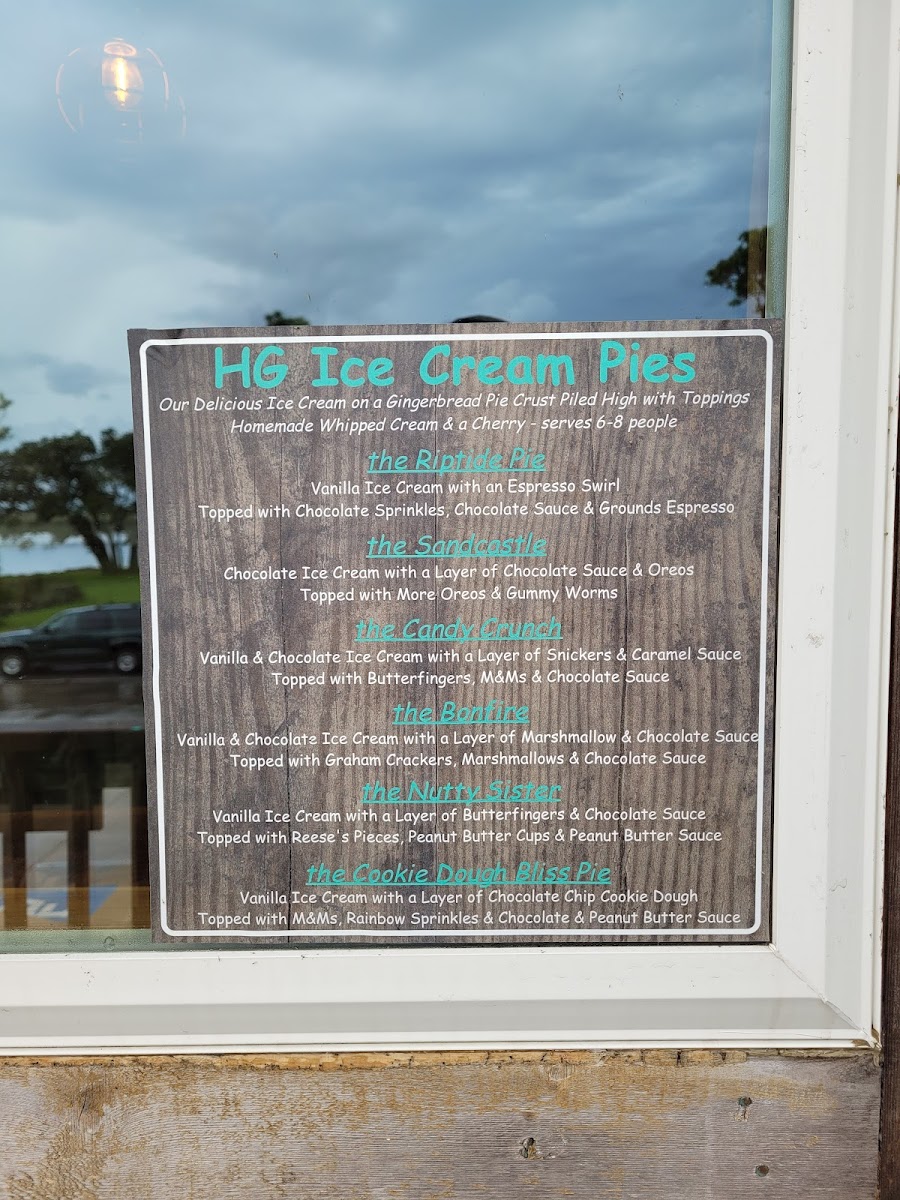 HG Ice Cream Pies
Our Delicious Ice Cream on a Gingerbread Pie Crust Piled High with Toppings
Homemade Whipped Cream & a Cherry - serves 6-8 people
the Riptide Pie
Vanilla Ice Cream with an Espresso Swirl
Topped with Chocolate Sprinkles, Chocolate Sauce & Grounds Espresso
the Sandcastle
Chocolate Ice Cream with a Layer of Chocolate Sauce & Oreos
Topped with More Oreos & Gummy Worms
the Candy Crunch
Vanilla & Chocolate Ice Cream with a Layer of Snickers & Caramel Sauce
Topped with Butterfingers, M&Ms & Chocolate Sauce
the Bonfire
Vanilla & Chocolate Ice Cream with a Layer of Marshmallow & Chocolate Sauce
Topped with Graham Crackers, Marshmallows & Chocolate Sauce
the Nutty Sister
Vanilla Ice Cream with a Layer of Butterfingers & Chocolate Sauce
Topped with Reese's Pieces, Peanut Butter Cups & Peanut Butter Sauce
the Cookie Dough Bliss Pie
Vanilla Ice Cream with a Layer of Chocolate Chip Cookie Dough
Topped with M&Ms, Rainbow Sprinkles & Chocolate & Peanut Butter Sauce